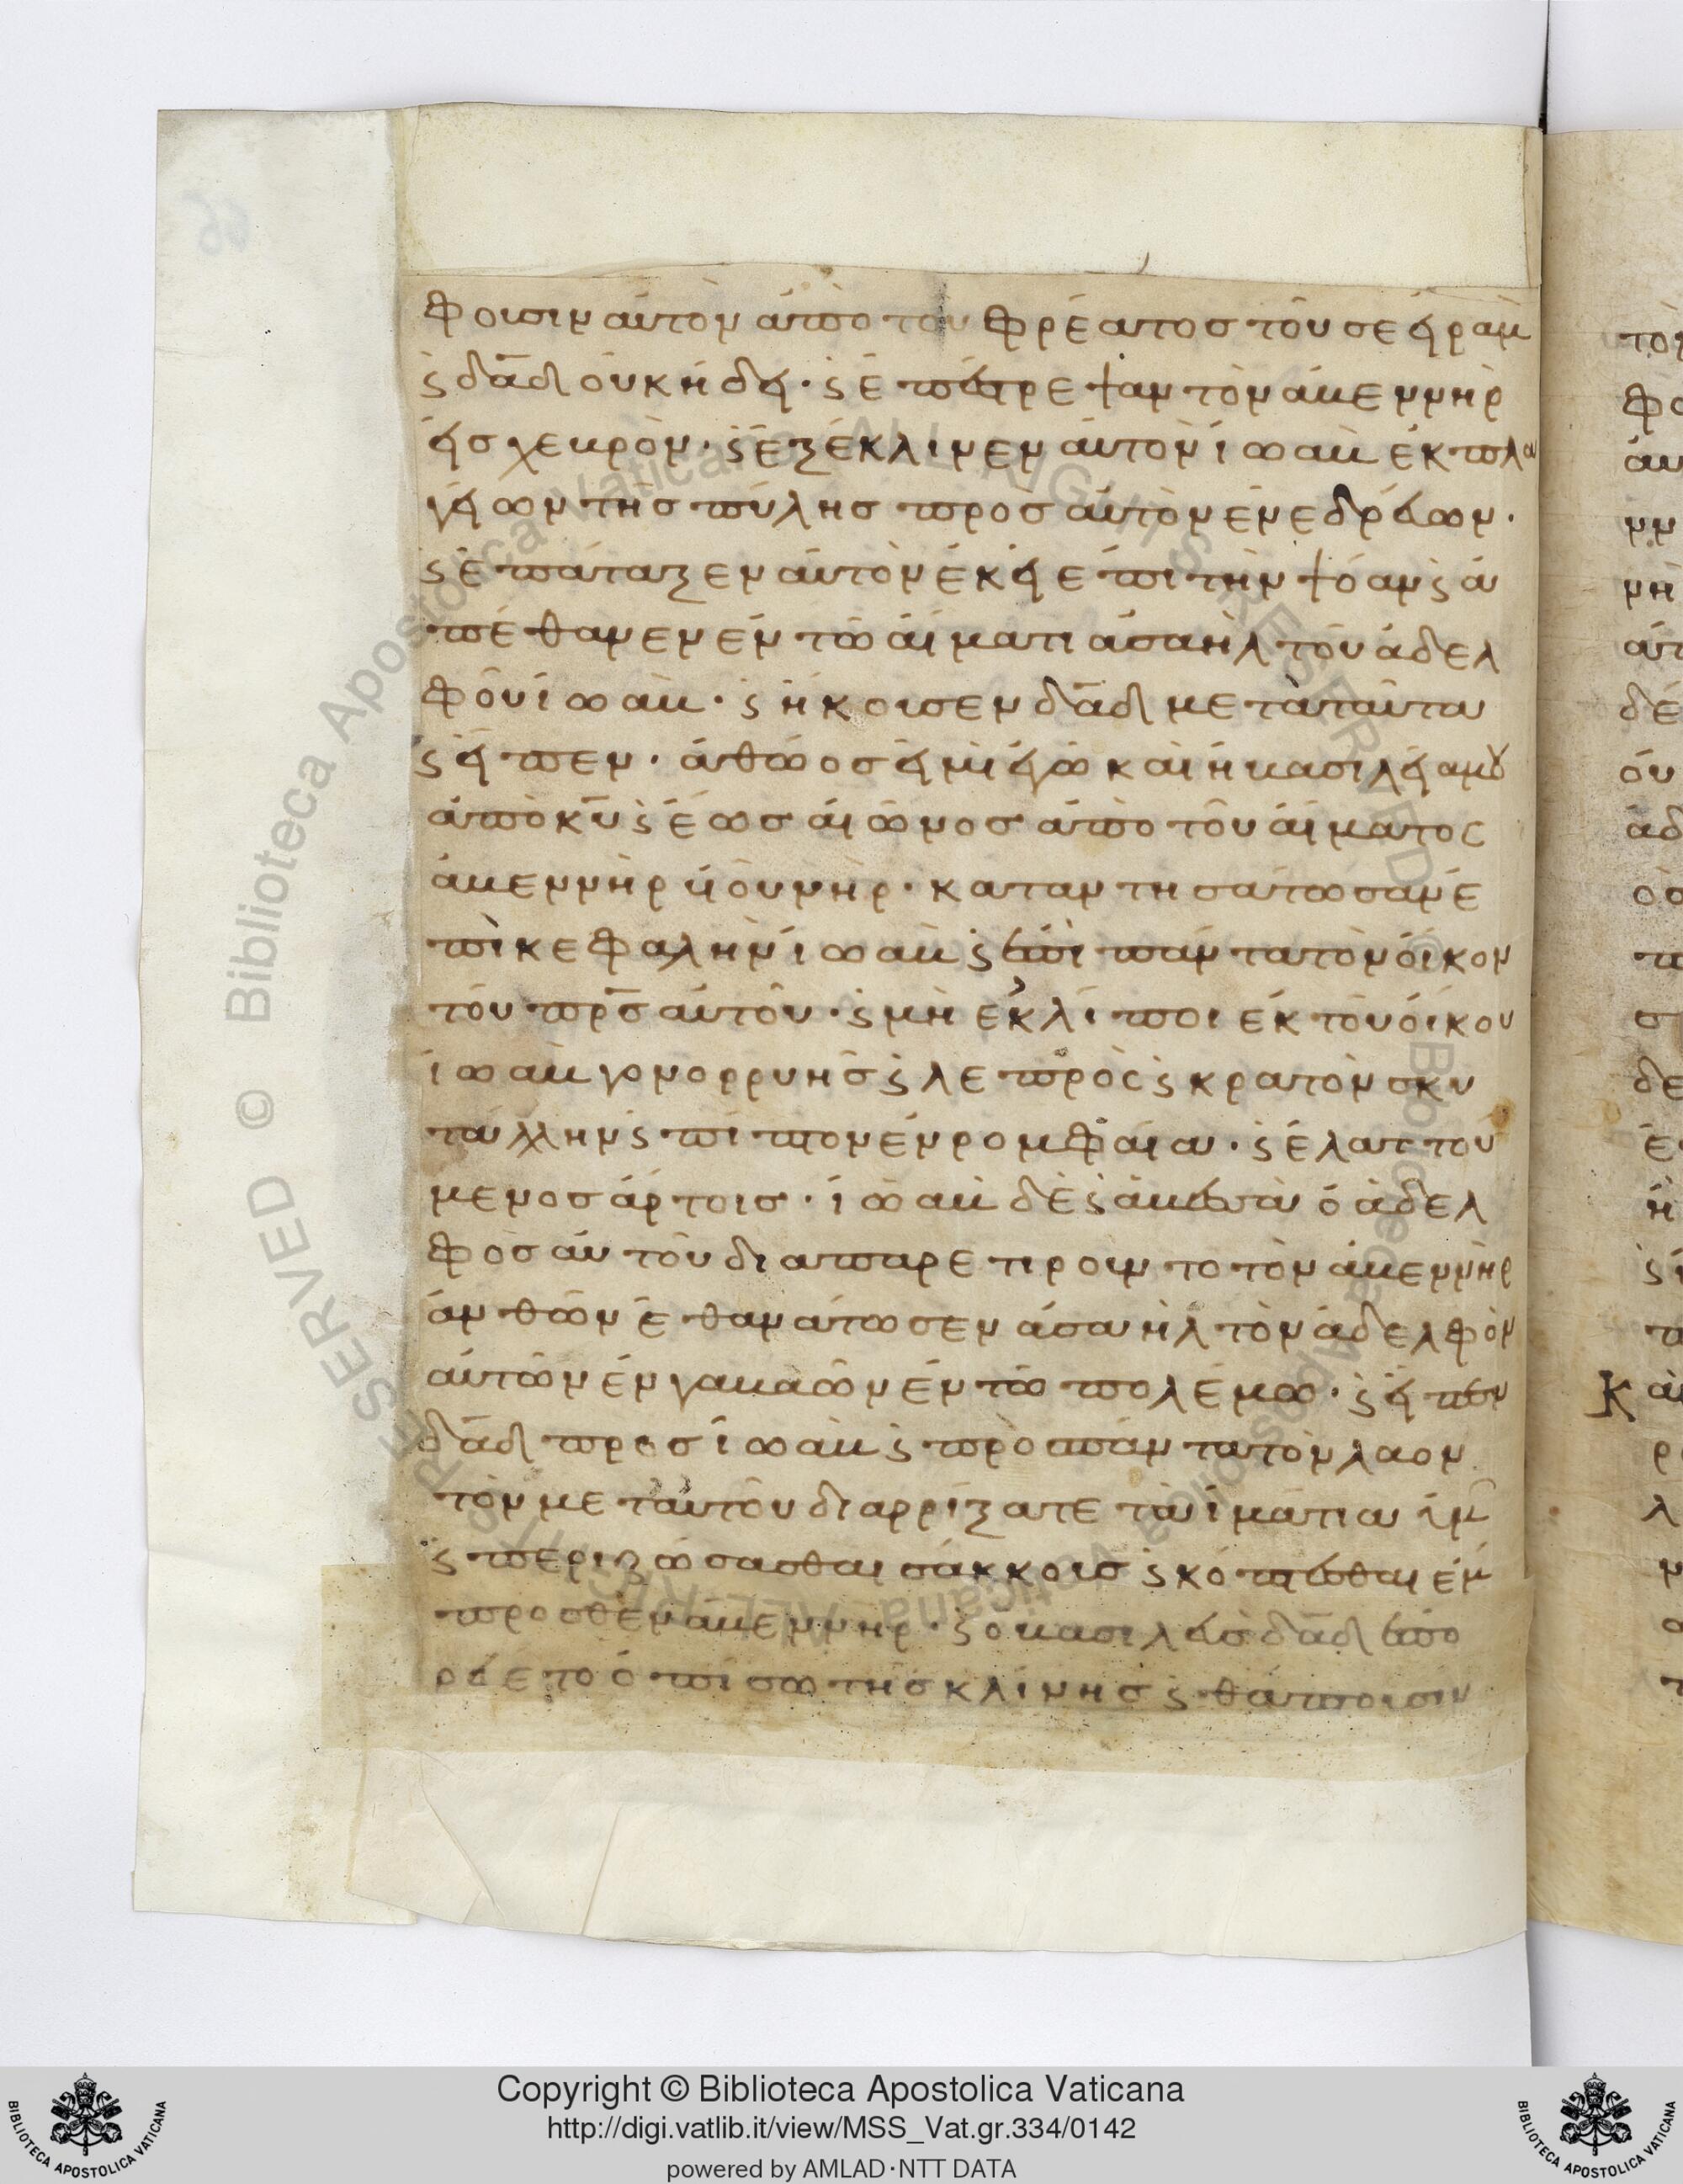 φουσιν αὐτὸν ἀπὸ τοῦ φρέατος τοῦ σεειραμ
ϛ δα̅δ οὐκ ἤδει· ϛ ἐπέστρεψαν τὸν ἀβεννηρ
εἰς χεβρὸν· ϛ ἐξέκλινεν αὐτὸν ἰωαβ ἐκ πλα
γείων τῆς πύλης πρὸς αὐτὸν ἐνεδρεύων·
ϛ ἐπάταξεν αὐτὸν ἐκεῖ ἐπι τὴν ψόαν ϛ ἀ
πέθανεν ἐν τῶ αἵματι ἀσαὴλ τοῦ ἀδελ
φοῦ ἰωαβ· ϛ ἤκουσεν δα̅δ μετὰ ταῦτα
ϛ εἶπεν· ἀθῶος εἰμὶ ἐγὼ καὶ ἡ βασιλείαμου
ἀπὸ κ̅υ̅ ϛ ἕως αἰῶνος ἀπὸ τοῦ αἵματος
ἀβεννὴρ ὑιοῦ νὴρ· καταντησάτωσαν ἐ
πὶ κεφαλὴν ἰωαβ ϛ ἐπὶ πάντα τὸν οἶκον
τοῦ π̅ρ̅ς̅ αὐτοῦ· ϛ μὴ ἐκλίποι ἐκ τοῦ οἴκου
ἰωαβ γονορρυὴς ϛ λεπρὸς ϛ κρατὸν σκυ
τάλλην ϛ πίπτον ἐν ρομφαία· ϛ ἐλαττού
μενος ἄρτοις· ἰωαβ δὲ ϛ ἀβεσσὰ ὁ ἀδελ
φὸς αὐτοῦ διαπαρετηροῦντο τὸν ἀβεννὴρ
ἀνθῶν ἐθανάτωσεν ἀσαὴλ τὸν ἀδελφὸν
αὐτῶν ἐν γαβαὼν ἐν τῶ πολέμω· ϛ εἶπεν
δα̅δ προς ἰωαβ ϛ πρὸς πάντα τὸν λαον
τὸν μετ' αὐτοῦ διαρρίξατε τὰ ἱμάτια ὑμ
ϛ περιζώσασθαι σάκκους ϛ κόπτεσθαι ἔμ
προσθεν ἀβεννὴρ· ϛ ὁ βασιλεὺς δα̅δ ἐπο
ρεύετο ὀπίσω τῆς κλίνης ϛ θάπτουσιν